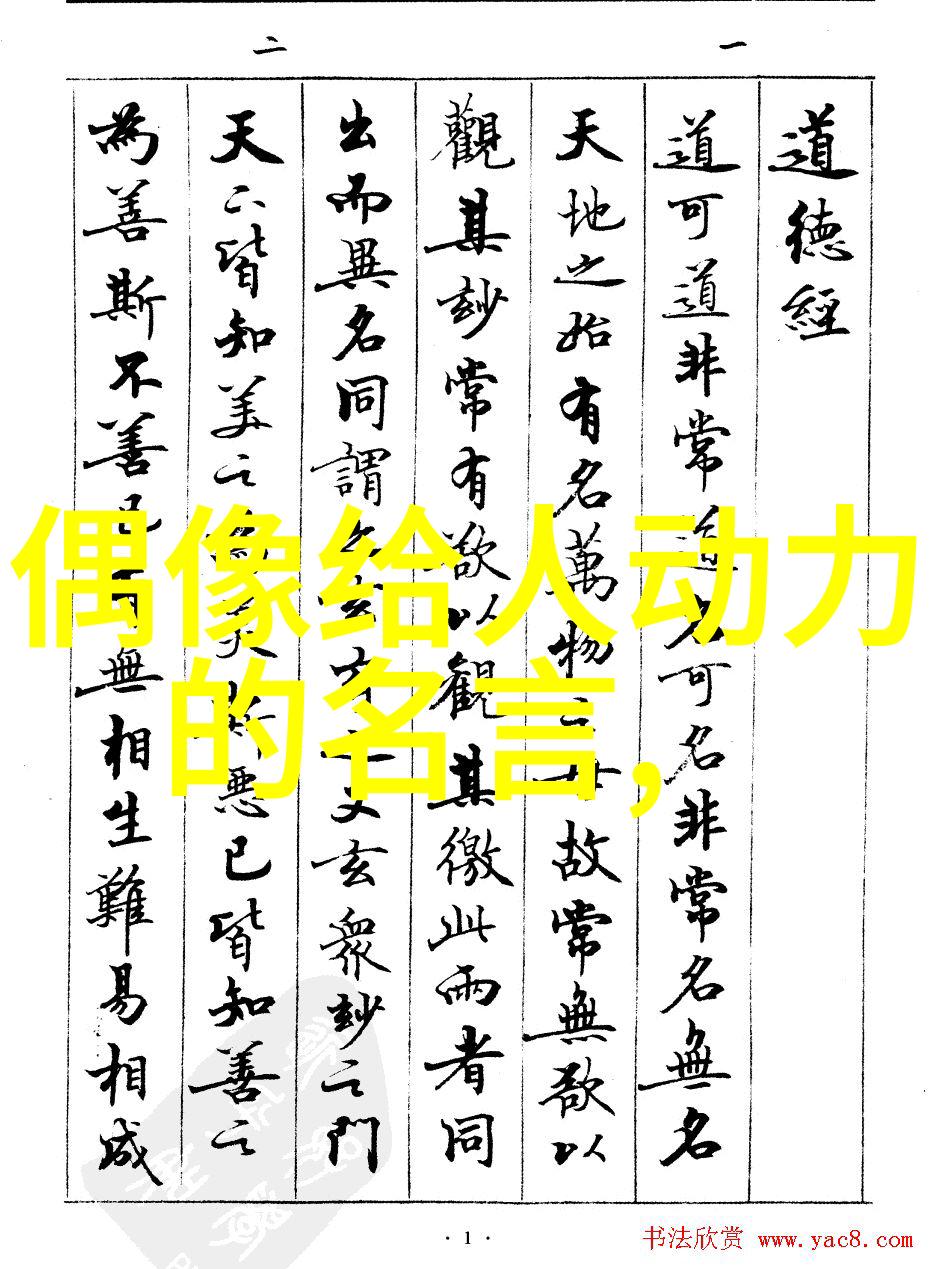 一
二
道德經
道可道非常道名可名非常名無名
天地之始有名萬物之母故常無欲以
觀其玅常有欲以觀其徼此兩者同
出而異名同謂之玄玄之又玄衆玅之門
天下皆知美之為美斯惡已皆知善之
為善斯不善已有無相生難易相成
偶像给人动力
的名言,
· 1 ·
书法欣赏 www.yac8.com